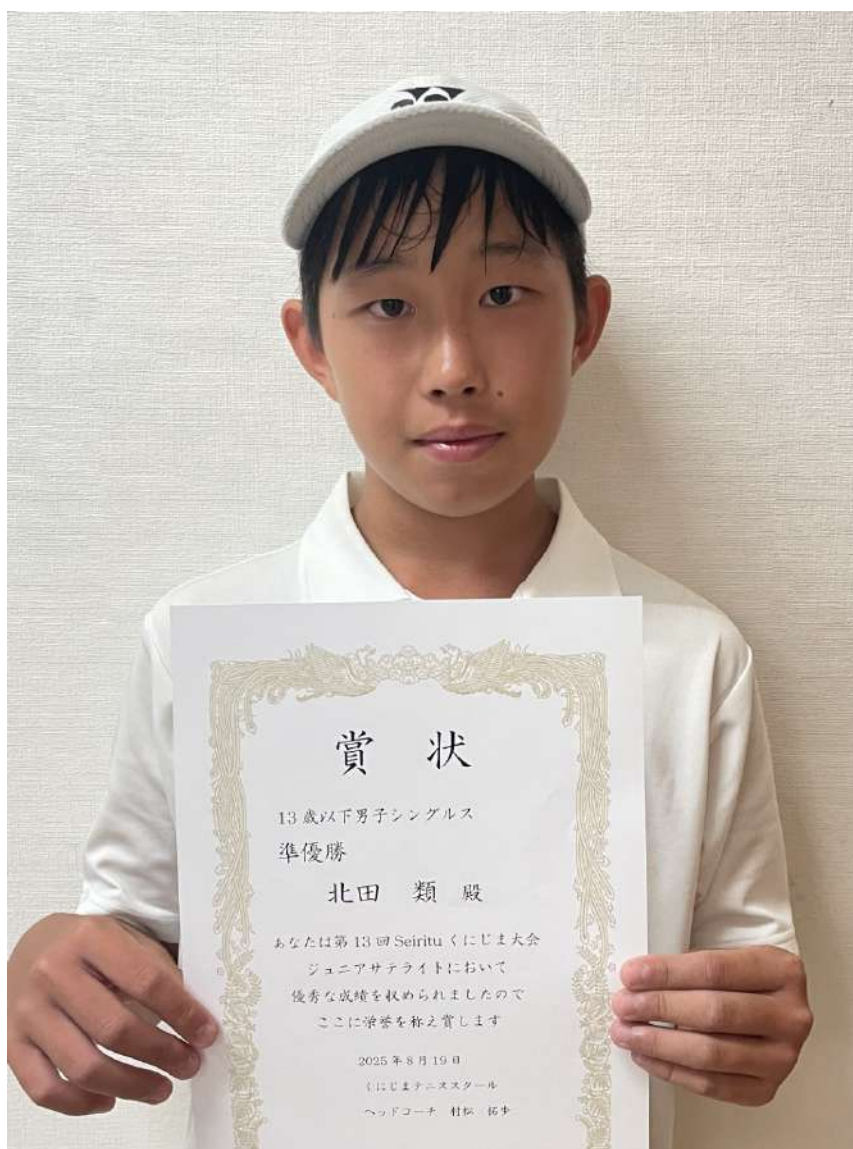 賞 状
13歳以下男子シングルス
準優勝
北田 類 殿
あなたは第13回 Seirituくにじま大会
ジュニアサテライトにおいて
優秀な成績を収められましたので
ここに栄誉を称え賞します
2025年8月19日
くにじまテニススクール
ヘッドコーチ 村松 拓歩